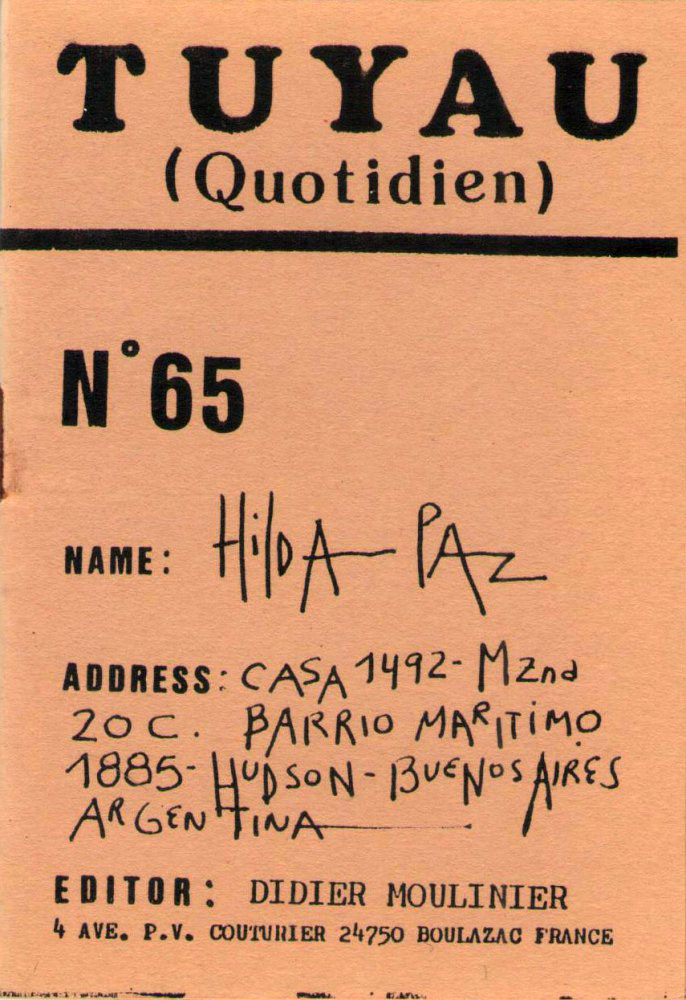 TUYAU
(Quotidien)
N°65
NAME: HilDA PAZ
ADDRESS: CASA 1492- Mznd
20 C. BARRIO MARITIMO
1885- HUDSON - BUENOS AIRES
ARGENTINA
EDITOR: DIDIER MOULINIER
4 AVE. P.V. COUTURIER 24750 BOULAZAC FRANCE